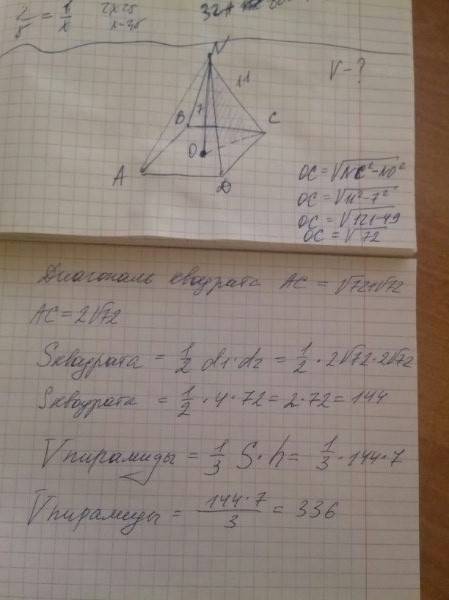 2/5 = 6/x
N
11
V - ?
B
7
C
O
A
D
OC = √NC² - NO²
OC = √11² - 7²
OC = √121 - 49
OC = √72
Диагональ квадрата AC = √72+√72
AC = 2√72
Sквадрата = 1/2 d1·d2 = 1/2 · 2√72·2√72
Sквадрата = 1/2 · 4 · 72 = 2·72 = 144
Vпирамиды = 1/3 S·h = 1/3 · 144·7
Vпирамиды = 144·7/3 = 336